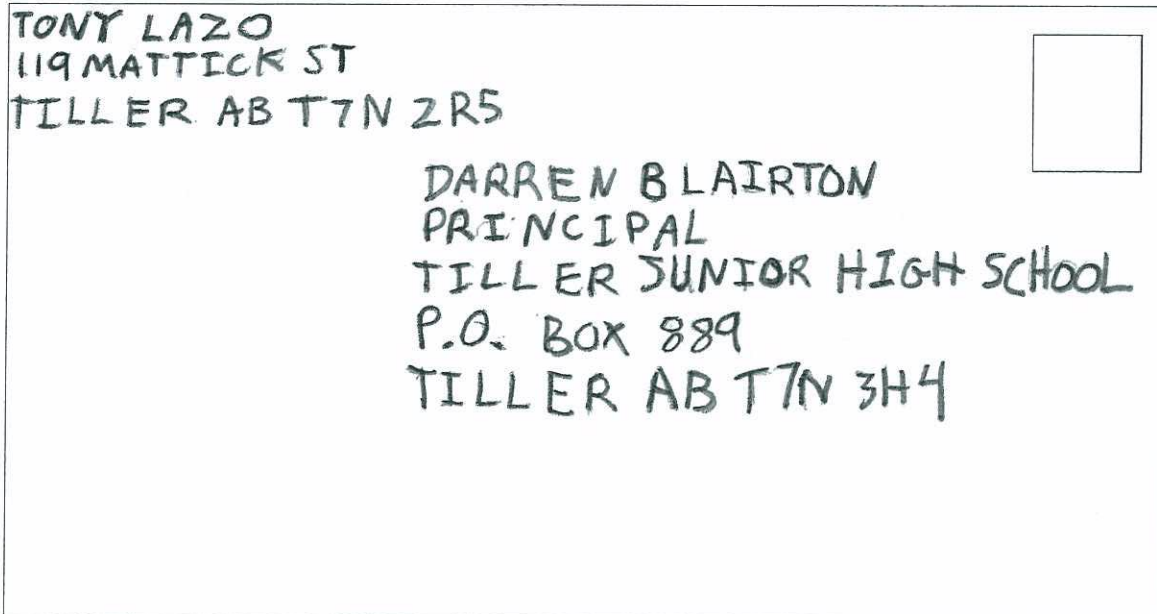 TONY LAZO
119 MATTICK ST
TILLER AB T7N 2R5
DARREN BLAIRTON
PRINCIPAL
TILLER JUNIOR HIGH SCHOOL
P.O. BOX 889
TILLER AB T7N 3H4